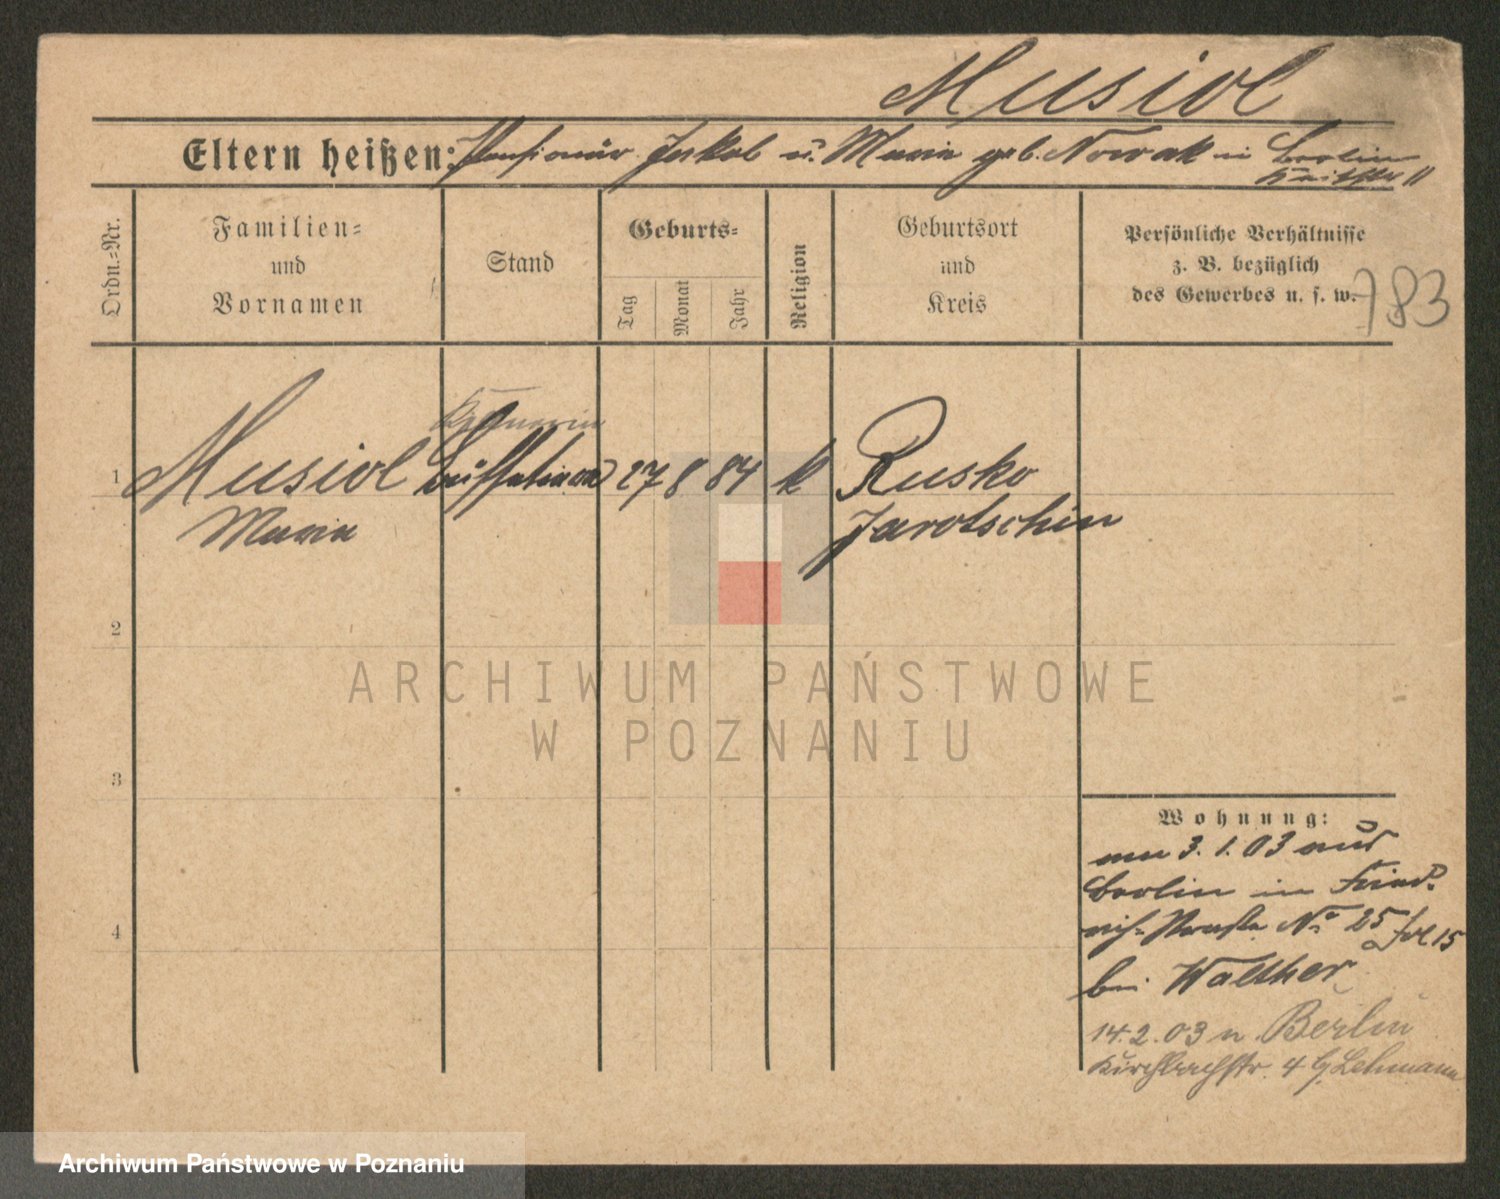 Musiol
Eltern heißen: Pensionär Jakob u. Maria geb. Nowak in Berlin
11
Ordn.=Nr.
Familien=
und
Vornamen
Stand
Geburts=
Tag
Monat
Jahr
Religion
Geburtsort
und
Kreis
Persönliche Verhältnisse
z. B. bezüglich
des Gewerbes u. s. w.
783
Kellnerin
1 Musiol Buffetiere 27 8 84 k Rusko
Maria Jarotschin
2
3
4
ARCHIWUM PAŃSTWOWE
W POZNANIU
Wohnung:
am 3. 1. 03 aus
Berlin in Fried-
rich-Straße No 25 Fol. 15
bei Walther
14. 2. 03 n. Berlin
Kirchbachstr. 4 b. Lehmann
Archiwum Państwowe w Poznaniu